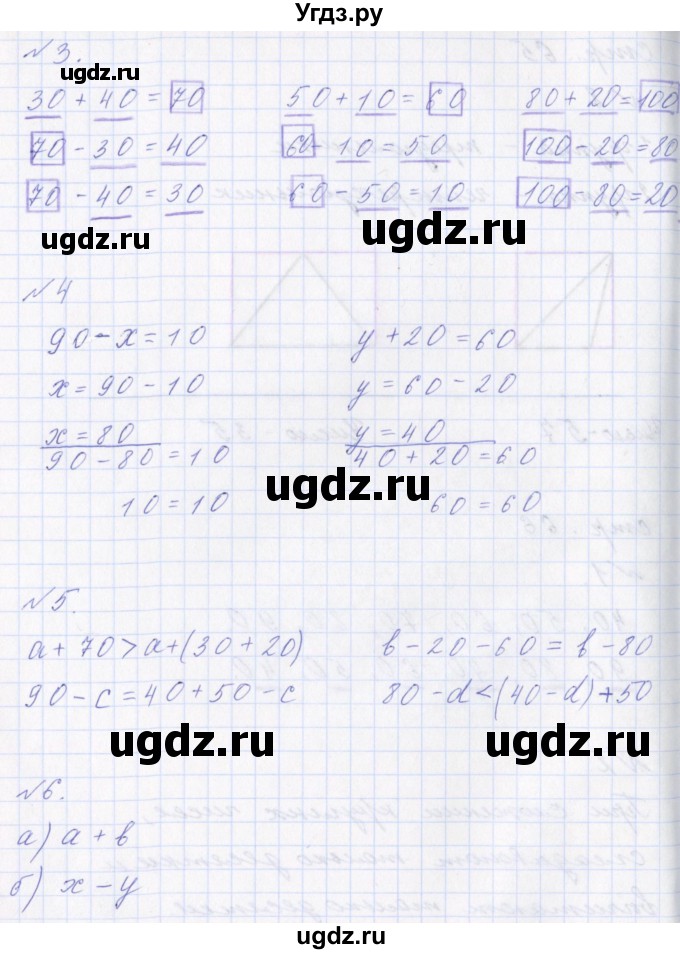 Угдз.ру
№3.
30 + 40 = 70    50 + 10 = 60    80 + 20 = 100
70 - 30 = 40    60 - 10 = 50    100 - 20 = 80
70 - 40 = 30    60 - 50 = 10    100 - 80 = 20
№4
90 - x = 10    y + 20 = 60
x = 90 - 10    y = 60 - 20
x = 80    y = 40
90 - 80 = 10    40 + 20 = 60
10 = 10    60 = 60
№5.
a + 70 > a + (30 + 20)    в - 20 - 60 = в - 80
90 - c = 40 + 50 - c    80 - d < (40 - d) + 50
№6.
а) a + в
б) x - y
ugdz.ru
ugdz.ru
ugdz.ru
ugdz.ru
ugdz.ru
ugdz.ru
ugdz.ru
ugdz.ru